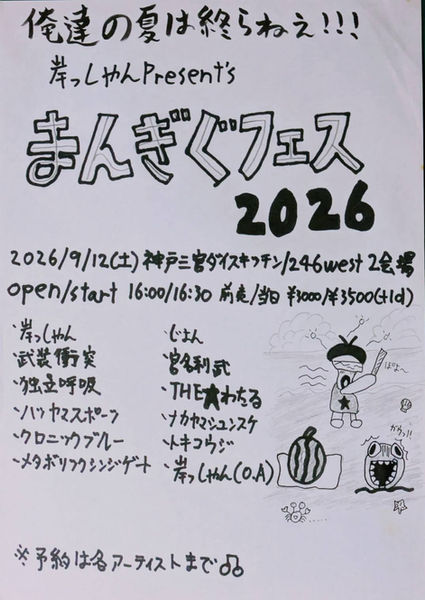 俺達の夏は終らねぇ!!!
岸っしゃんPresent's
まんぎぐフェス
2026
2026/9/12(土) 神戸三宮ダイスキッチン/246west 2会場
open/start 16:00/16:30 前売/当日 ¥3000/¥3500(+1d)
・岸っしゃん
・武装衝突
・独立呼吸
・ハツヤマスポーツ
・クロニックブルー
・メタボリックシンジゲート
・じょん
・宮名利武
・THE★わたる
・ナカヤマシュンスケ
・トキコウジ
・岸っしゃん(O.A)
ガウッ!!
※予約は各アーティストまで♫